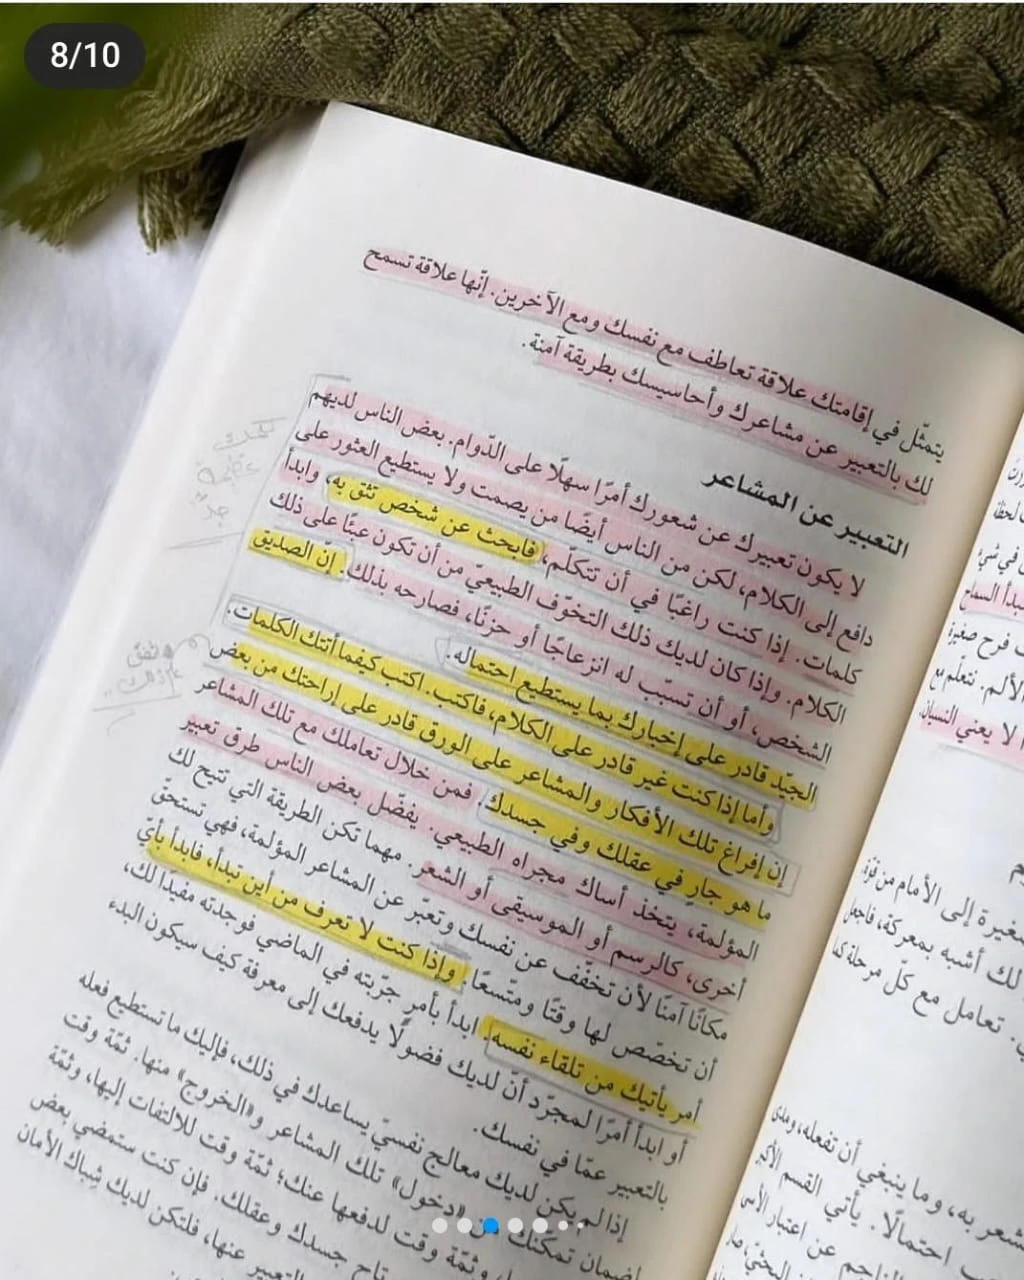 8/10
يتمثّل في إقامتك علاقة تعاطف مع نفسك ومع الآخرين. إنّها علاقة تسمح
لك بالتعبير عن مشاعرك وأحاسيسك بطريقة آمنة.
التعبير عن المشاعر
لا يكون تعبيرك عن شعورك أمرًا سهلًا على الدّوام. بعض الناس لديهم
دافع إلى الكلام، لكن من الناس أيضًا من يصمت ولا يستطيع العثور على
كلمات. إذا كنت راغبًا في أن تتكلّم، فابحث عن شخص تثق به، وابدأ
الكلام. وإذا كان لديك ذلك التخوّف الطبيعيّ من أن تكون عبئًا على ذلك
الشخص، أو أن تسبّب له انزعاجًا أو حزنًا، فصارحه بذلك. إنّ الصديق
الجيّد قادر على إخبارك بما يستطيع احتماله.
وأما إذا كنت غير قادر على الكلام، فاكتب. اكتب كيفما أتتك الكلمات.
إن إفراغ تلك الأفكار والمشاعر على الورق قادر على إراحتك من بعض
ما هو جار في عقلك وفي جسدك. فمن خلال تعاملك مع تلك المشاعر
المؤلمة، يتخذ أساك مجراه الطبيعي. يفضّل بعض الناس طرق تعبير
أخرى، كالرسم أو الموسيقى أو الشعر. مهما تكن الطريقة التي تتيح لك
مكانًا آمنًا لأن تخفّف عن نفسك وتعبّر عن المشاعر المؤلمة، فهي تستحقّ
أن تخصّص لها وقتًا ومتّسعًا. وإذا كنت لا تعرف من أين تبدأ، فابدأ بأيّ
أمر يأتيك من تلقاء نفسه. ابدأ بأمر جرّبته في الماضي فوجدته مفيدًا لك،
أو ابدأ أمرًا لمجرّد أنّ لديك فضولًا يدفعك إلى معرفة كيف سيكون البدء
بالتعبير عمّا في نفسك.
إذا لم يكن لديك معالج نفسيّ يساعدك في ذلك، فإليك ما تستطيع فعله
لضمان تمكنك من «دخول» تلك المشاعر و«الخروج» منها. ثمّة وقت
وثمّة وقت لدفعها عنك؛ ثمّة وقت للالتفات إليها، وثمّة
جسدك وعقلك. فإن كنت ستمضي بعض
التعبير عنها، فلتكن لديك شباك الأمان
لحظة
في شيء
بدأ السماح
فرح صغيرة
الألم. نتعلّم مع
لا يعني النسيان.
صغيرة إلى الأمام من قوة.
لك أشبه بمعركة، فاجعل
تعامل مع كلّ مرحلة كما
شعر به، وما ينبغي أن تفعله، ومدى
احتمالًا. يأتي القسم الأكبر
الناجم عن اعتبار الأسى